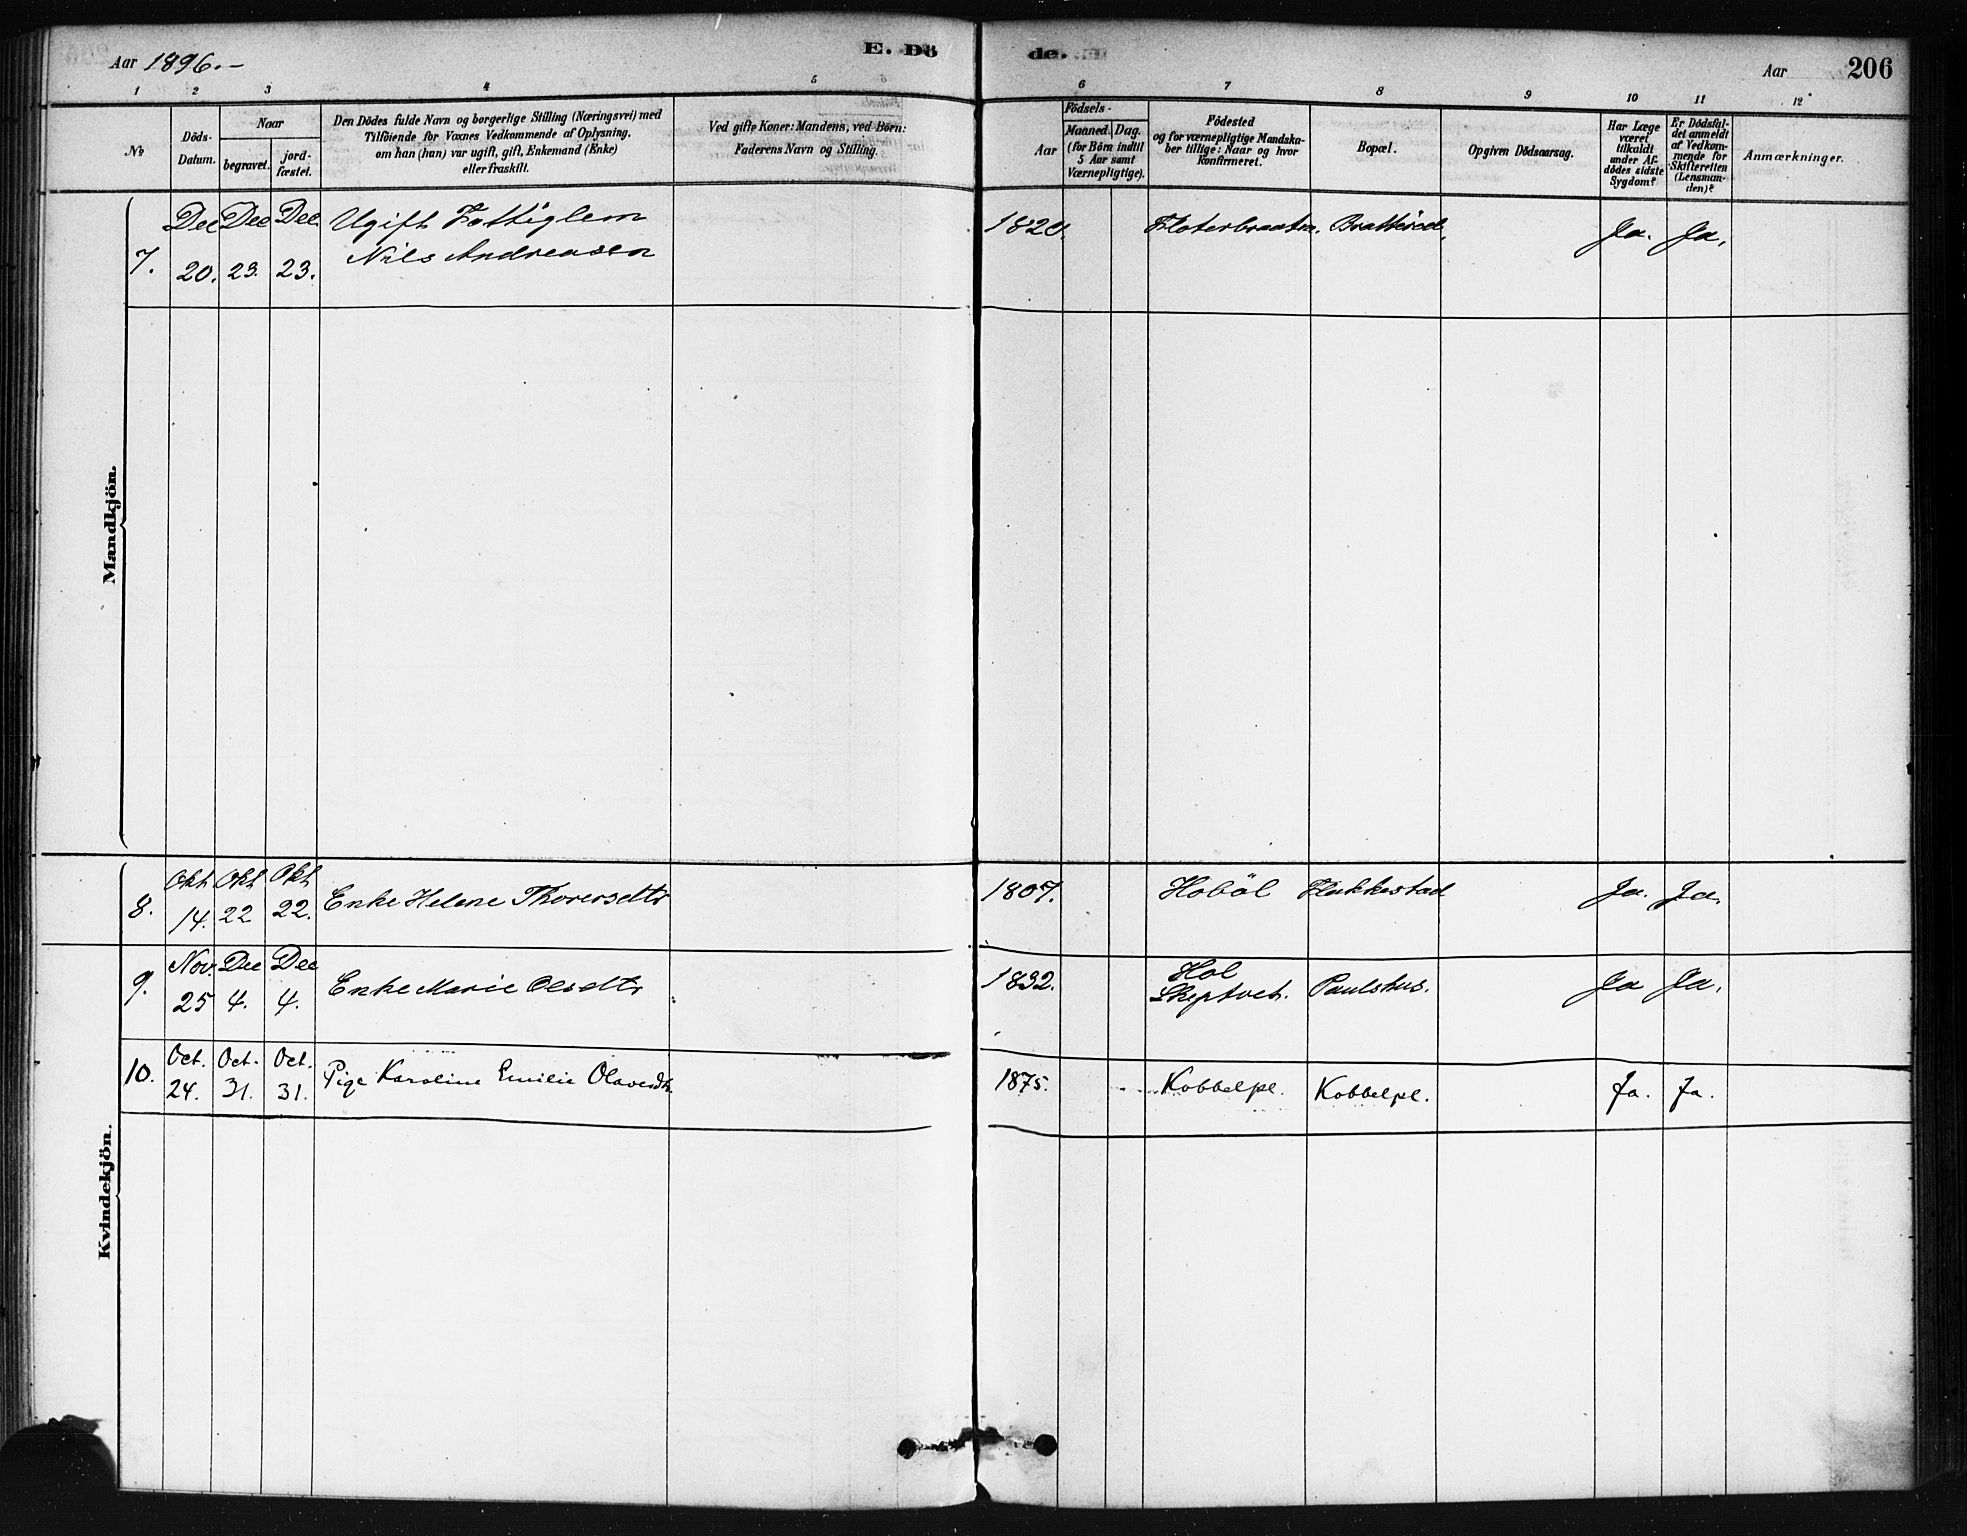 Aar 1896.-
E. Dö
de.
Aar
206
1 2 3 4 5 6 7 8 9 10 11 12
No
Döds-
Datum.
Naar
begravet.
jord-
fæstet.
Den Dödes fulde Navn og borgerlige Stilling (Næringsvei) med
Tilföiende for Voxnes Vedkommende af Oplysning,
om han (hun) var ugift, gift, Enkemand (Enke)
eller fraskilt.
Ved gifte Koner: Mandens, ved Börn:
Faderens Navn og Stilling.
Födsels-
Aar
Maaned.
Dag.
(for Börn indtil
5 Aar samt
Værnepligtige).
Födested
og for værnepligtige Mandska-
ber tillige: Naar og hvor
Konfirmeret.
Bopæl.
Opgiven Dödsaarsag.
Har Læge
været
tilkaldt
under Af-
dödes sidste
Sygdom?
Er Dödsfal-
det anmeldt
af Vedkom-
mende for
Skifteretten
(Lensman-
den)?
Anmærkninger.
Mandkjön.
7. Dec 20. Dec 23. Dec 23. Ugift Fattiglem
Nils Andreassen
Floterbraaten. Bratterød. Ja. Ja.
Kvindekjön.
8. Okt 14. Okt 22 Okt 22. Enke Helene Thoresdtr 1807. Hobøl Ja. Ja.
9. Nov. 25 Dec 4. Dec 4. Enke Marie Olsdtr 1832. Hol
Skeptvet. Paulshus. Ja Ja.
10. Oct. 24. Oct. 31. Oct. 31. Pige Karoline Emilie Olavesdtr. 1875. Kobbelpl. Kobbelpl. Ja. Ja.